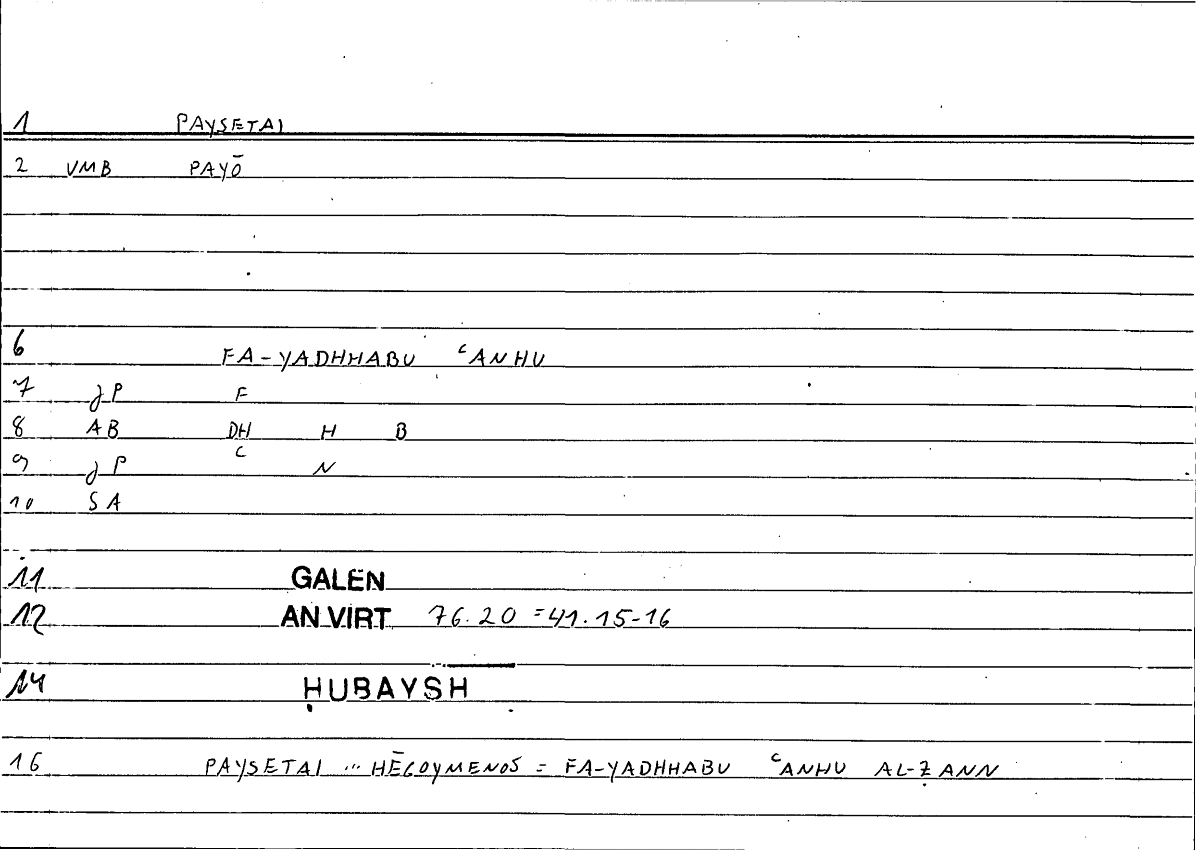 1 PAYSETAI
2 VMB PAYŌ
6 FA-YADHHABU ᶜANHU
7 JP F
8 AB DH H B
9 JP ᶜ N
10 SA
11 GALEN
12 AN VIRT 76.20 = 41.15-16
14 ḤUBAYSH
16 PAYSETAI ... HĒGOYMENOS = FA-YADHHABU ᶜANHU AL-ẒANN